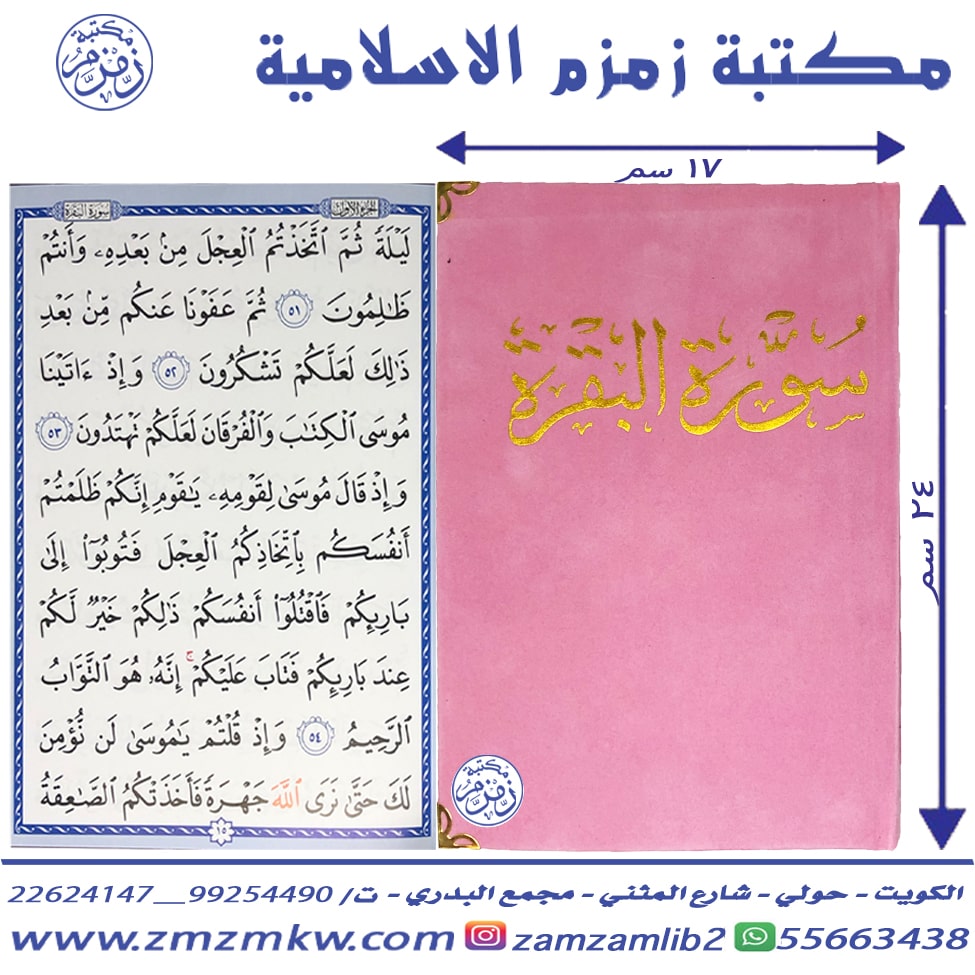 مكتبة زمزم
مكتبة زمزم الاسلامية
١٧ سم
٢٤ سم
الجزء الأول
سورة البقرة
لَيْلَةً ثُمَّ ٱتَّخَذْتُمُ ٱلْعِجْلَ مِنۢ بَعْدِهِۦ وَأَنتُمْ
ظَـٰلِمُونَ ٥١ ثُمَّ عَفَوْنَا عَنكُم مِّنۢ بَعْدِ
ذَٰلِكَ لَعَلَّكُمْ تَشْكُرُونَ ٥٢ وَإِذْ ءَاتَيْنَا
مُوسَى ٱلْكِتَـٰبَ وَٱلْفُرْقَانَ لَعَلَّكُمْ تَهْتَدُونَ ٥٣
وَإِذْ قَالَ مُوسَىٰ لِقَوْمِهِۦ يَـٰقَوْمِ إِنَّكُمْ ظَلَمْتُمْ
أَنفُسَكُم بِٱتِّخَاذِكُمُ ٱلْعِجْلَ فَتُوبُوٓا۟ إِلَىٰ
بَارِئِكُمْ فَٱقْتُلُوٓا۟ أَنفُسَكُمْ ذَٰلِكُمْ خَيْرٌ لَّكُمْ
عِندَ بَارِئِكُمْ فَتَابَ عَلَيْكُمْ ۚ إِنَّهُۥ هُوَ ٱلتَّوَّابُ
ٱلرَّحِيمُ ٥٤ وَإِذْ قُلْتُمْ يَـٰمُوسَىٰ لَن نُّؤْمِنَ
لَكَ حَتَّىٰ نَرَى ٱللَّهَ جَهْرَةً فَأَخَذَتْكُمُ ٱلصَّـٰعِقَةُ
١٥
سورة البقرة
مكتبة زمزم
الكويت - حولي - شارع المثني - مجمع البدري - ت/ 99254490__22624147
www.zmzmkw.com zamzamlib2 55663438